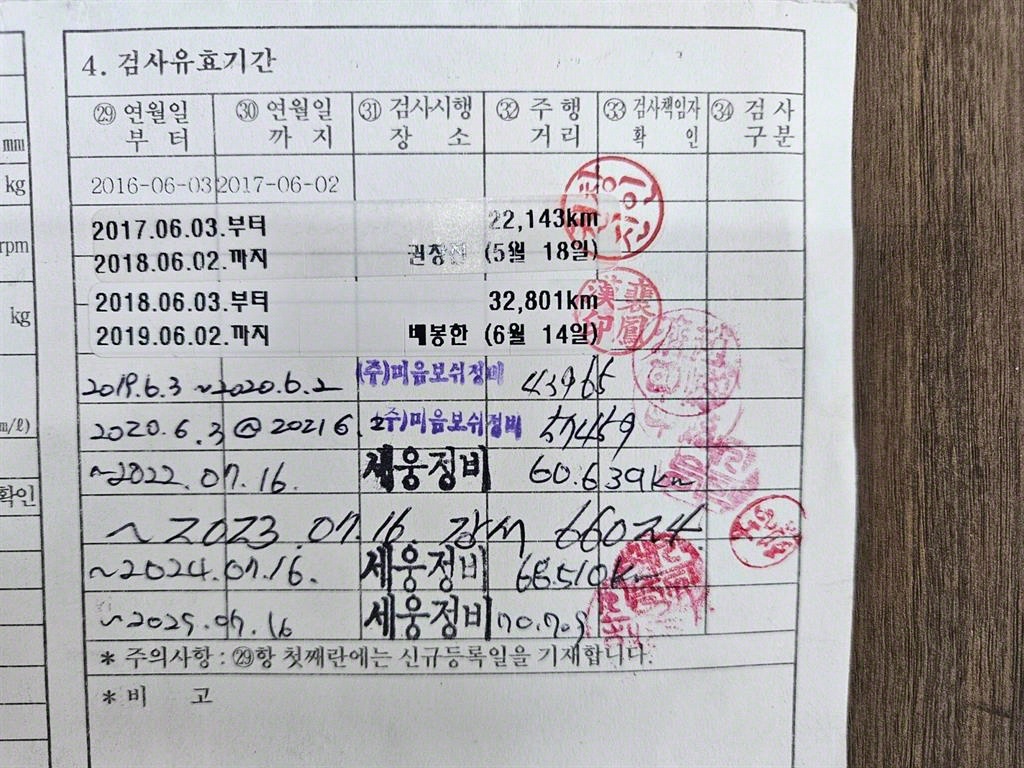 mm
kg
rpm
kg
m/ℓ)
확인
4. 검사유효기간
㉙ 연월일 부 터 ㉚ 연월일 까 지 ㉛ 검사시행 장 소 ㉜ 주 행 거 리 ㉝ 검사책임자 확 인 ㉞ 검 사 구 분
2016-06-03 2017-06-02
2017.06.03.부터 22,143km
2018.06.02.까지 권창 (5월 18일)
2018.06.03.부터 32,801km
2019.06.02.까지 배봉한 (6월 14일)
裵鳳漢印
2019.6.3 ~2020.6.2 (주)미음보쉬정비 43965
2020.6.3 @ 2021 6. 2 주)미음보쉬정비 57459
~2022.07.16. 세웅정비 60.639km
~2023.07.16. 강서 66024.
~2024.07.16. 세웅정비 68.510km
~2025.07.16 세웅정비 70.709
* 주의사항 : ㉙항 첫째란에는 신규등록일을 기재합니다.
* 비 고